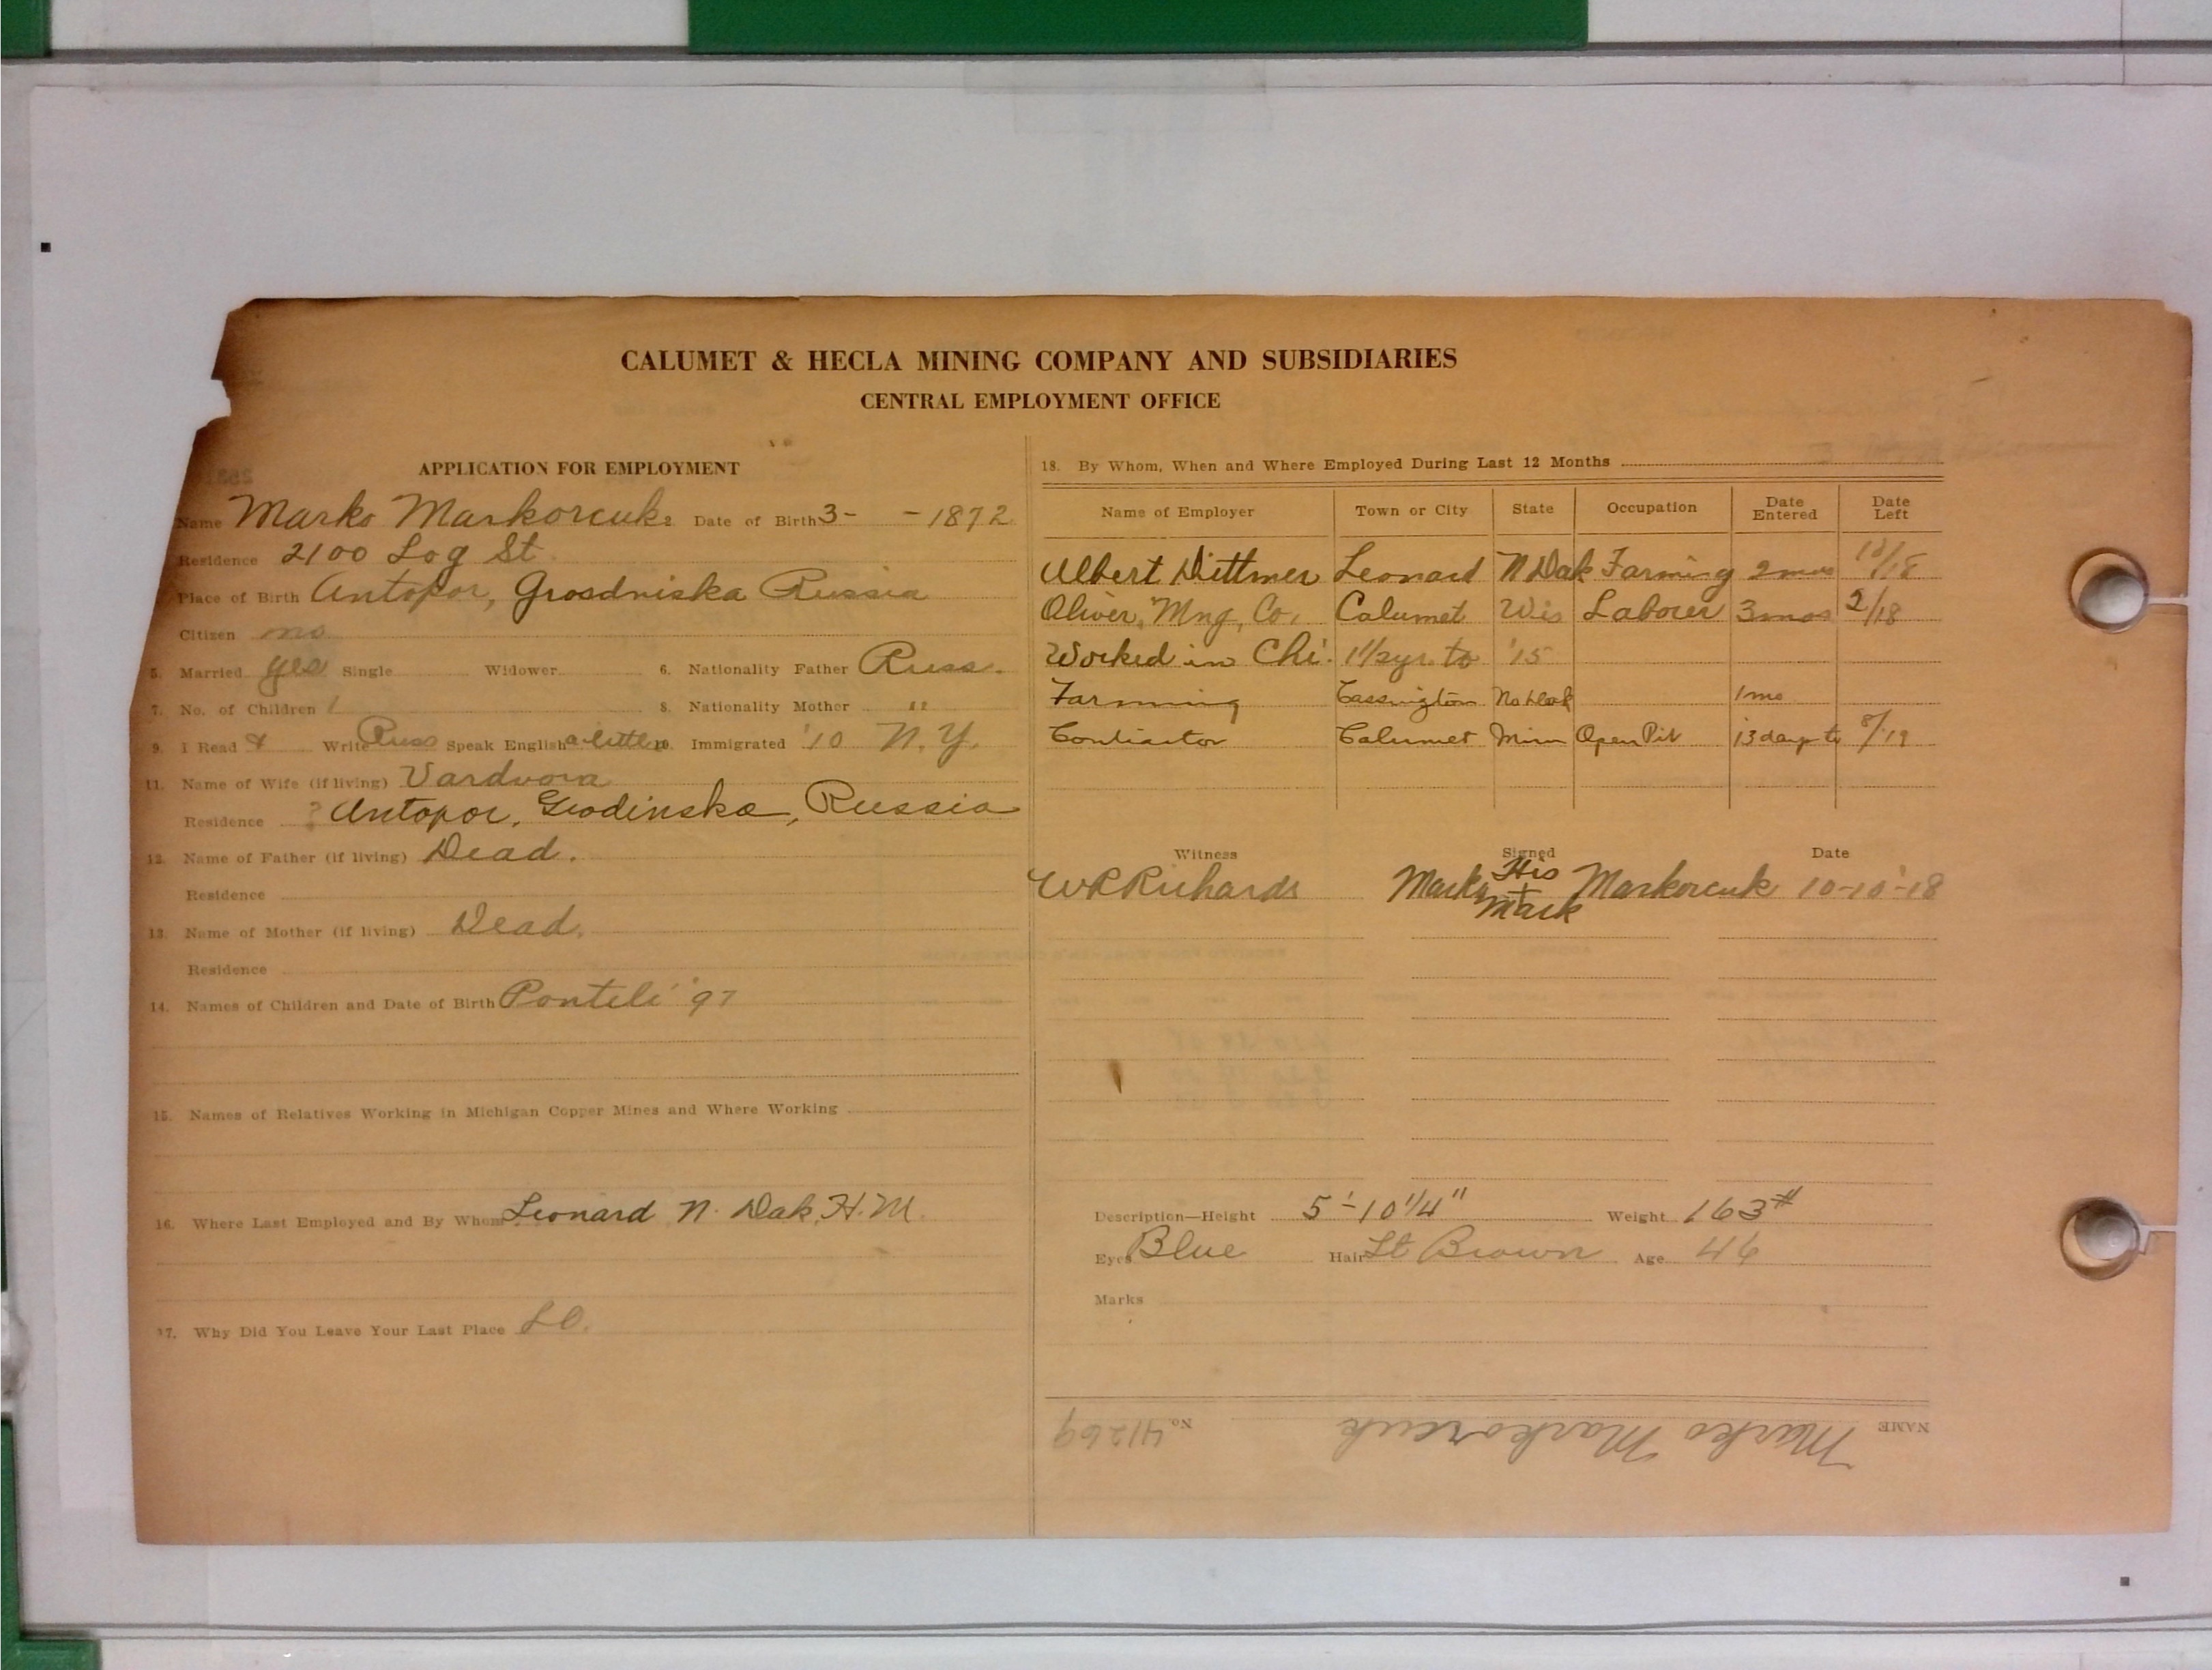 CALUMET & HECLA MINING COMPANY AND SUBSIDIARIES
CENTRAL EMPLOYMENT OFFICE
APPLICATION FOR EMPLOYMENT
Name Marko Markorcuk Date of Birth 3- - 1872
Residence 2100 Log St
Place of Birth Antopor, Grosdniska Russia
Citizen no
5. Married yes Single Widower 6. Nationality Father Russ.
7. No. of Children 1 8. Nationality Mother "
9. I Read & Write Russ Speak English a little 10. Immigrated '10 N.Y.
11. Name of Wife (if living) Vardvora
Residence ? Antopor, Grodinska, Russia
12. Name of Father (if living) Dead.
Residence
13. Name of Mother (if living) Dead.
Residence
14. Names of Children and Date of Birth Ponteli '97
15. Names of Relatives Working in Michigan Copper Mines and Where Working
16. Where Last Employed and By Whom Leonard N. Dak. H.M.
17. Why Did You Leave Your Last Place LO.
18. By Whom, When and Where Employed During Last 12 Months
Name of Employer Town or City State Occupation Date Entered Date Left
Albert Dittmer Leonard N Dak Farming 2 mos
Oliver Mng. Co. Calumet Wis Laborer 3 mos 2/18
Worked in Chi. 1 1/2 yr. to '15
Farming 1 mo
Contractor Calumet Minn Open Pit 13 days to 8/19
Witness Signed Date
W R Richards Marko His + Mark Markorcuk 10-10-18
Description—Height 5'-10 1/4" Weight 163#
Eyes Blue Hair Lt Brown Age 46
Marks
NAME Marko Markorcuk No. 41269